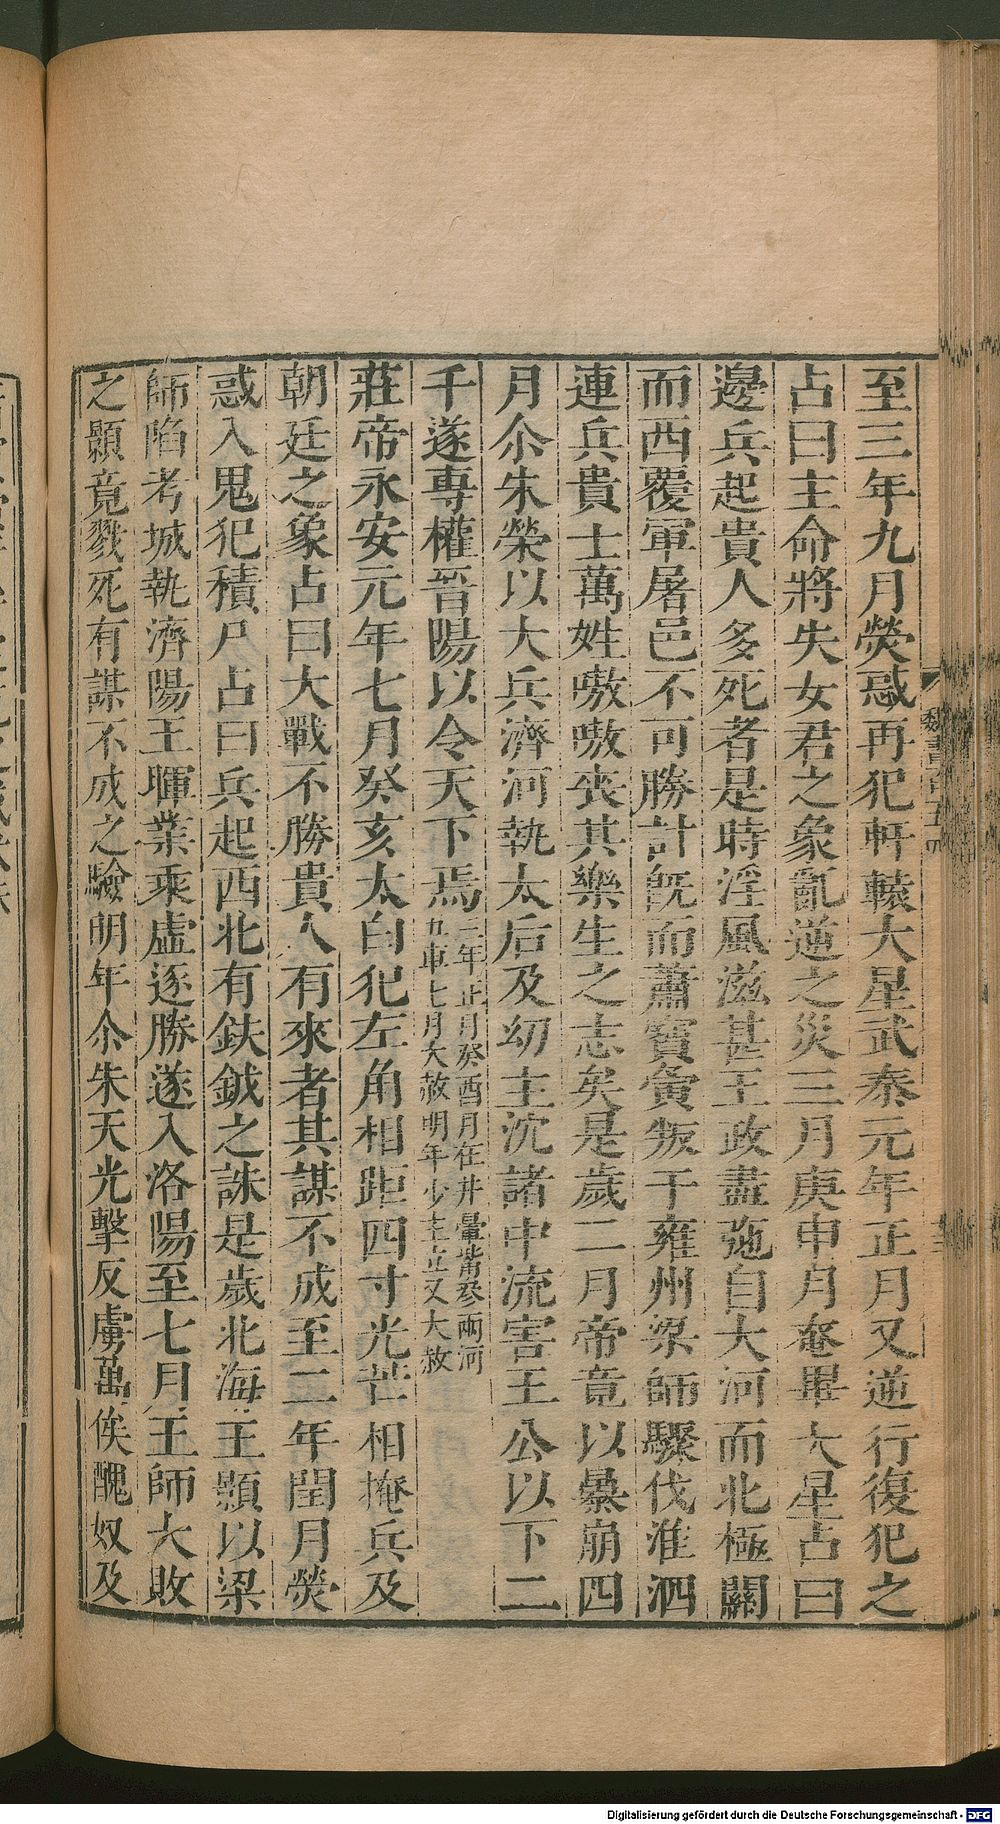 至三年九月熒惑再犯軒轅大星武泰元年正月又逆行復犯之
占曰主命將失女君之象亂逆之災三月庚申月奄畢大星占曰
邊兵起貴人多死者是時淫風滋甚王政盡弛自大河而北極關
而西覆軍屠邑不可勝計旣而蕭寶夤叛于雍州梁師驟伐淮泗
連兵貴士萬姓嗷嗷喪其樂生之志矣是歲二月帝竟以暴崩四
月尒朱榮以大兵濟河執太后及幼主沈諸中流害王公以下二
千遂專權晉陽以令天下焉三年正月癸酉月在井暈觜參兩河五車七月大赦明年少主立又大赦
莊帝永安元年七月癸亥太白犯左角相距四寸光芒相掩兵及
朝廷之象占曰大戰不勝貴人有來者其謀不成至二年閏月熒
惑入鬼犯積尸占曰兵起西北有鈇鉞之誅是歲北海王顥以梁
師陷考城執濟陽王暉業乘虛逐勝遂入洛陽至七月王師大敗
之顥竟戮死有謀不成之驗明年尒朱天光擊反虜萬俟醜奴及
魏書
Digitalisierung gefördert durch die Deutsche Forschungsgemeinschaft - DFG